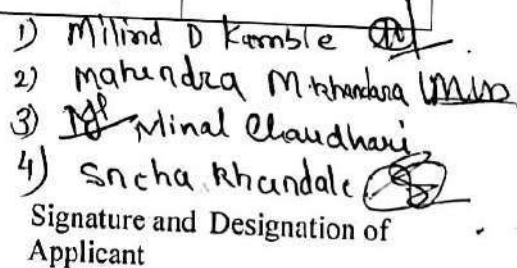 1) Milind D Kamble
2) Mahendra M. Khandara
3) Minal Chaudhari
4) Sneha Khandale
Signature and Designation of
Applicant